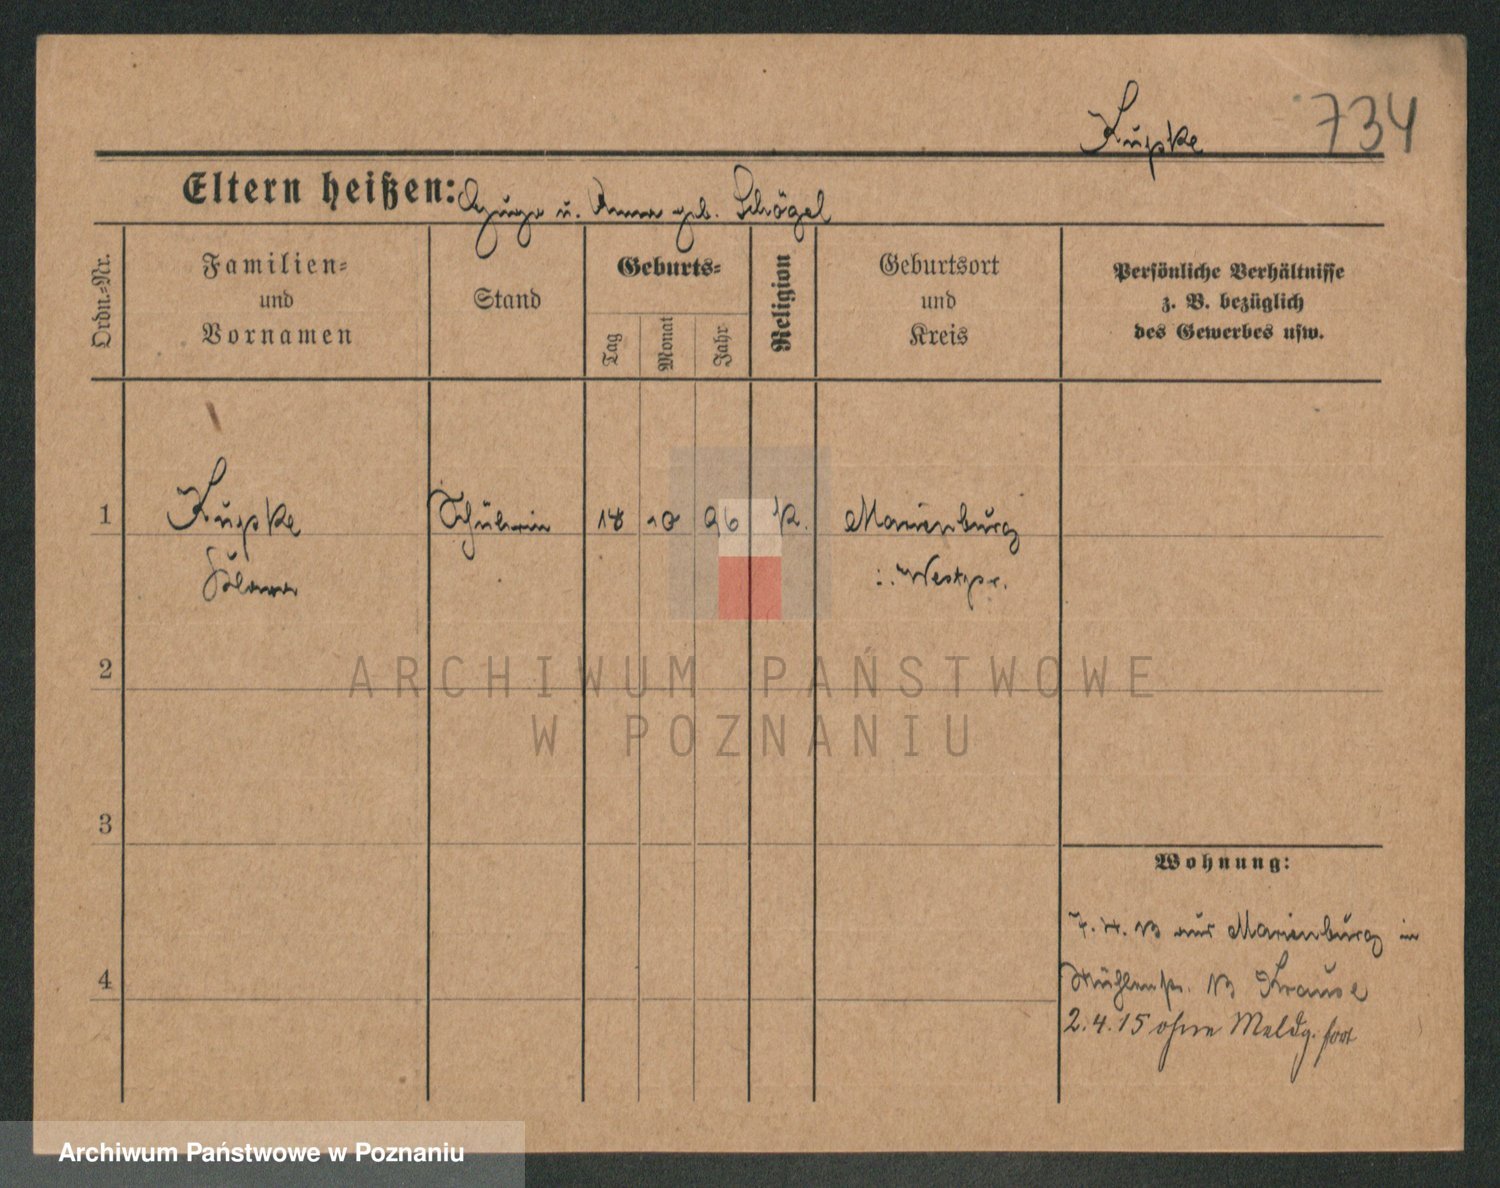 Kupke 734
Eltern heißen: Hugo u. Anna geb. Schögel
Ordn.-Nr.
Familien-
und
Vornamen
Stand
Geburts-
Tag
Monat
Jahr
Religion
Geburtsort
und
Kreis
Persönliche Verhältnisse
z. B. bezüglich
des Gewerbes usw.
1
Kupke
Schülerin
18 10 96 k.
Marienburg
i. Westpr.
2
ARCHIWUM PAŃSTWOWE
W POZNANIU
3
Wohnung:
aus Marienburg in
4
Mühlenstr. 13 Krause
2.4.15 ohne Meldg. fort
Archiwum Państwowe w Poznaniu